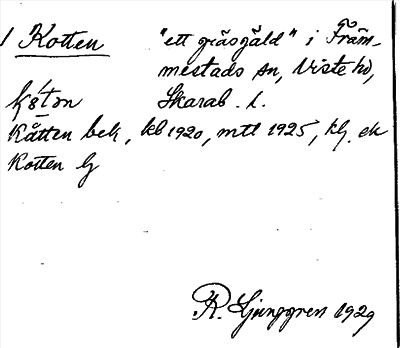 1 Kotten "ett gräsgäld" i Främ-
mestads sn, Viste hd,
Skarab. l.
Kåtten bek, kb 1920, mtl 1925, hfj. ek
Kotten Lj
R. Ljunggren 1929